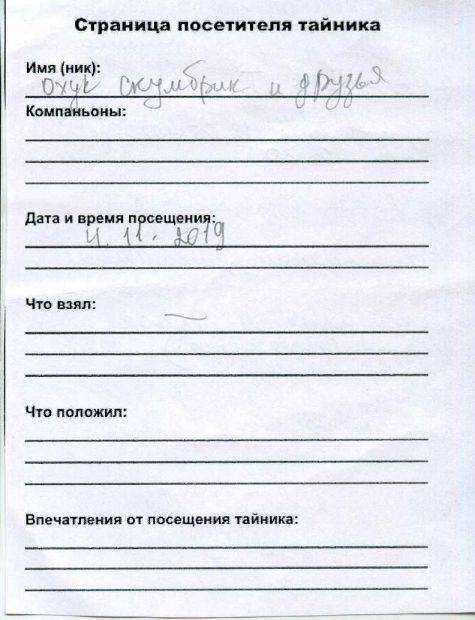 Страница посетителя тайника
Имя (ник):
охук скумбрик и друзья
Компаньоны:
Дата и время посещения:
4.11.2019
Что взял:
—
Что положил:
Впечатления от посещения тайника: